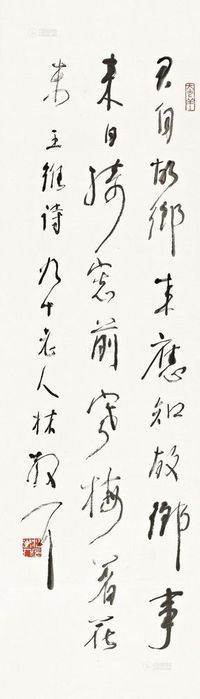 君自故鄉来應知故鄉事
来日綺窓前寒梅著花
未 王維詩 九十老人林散耳